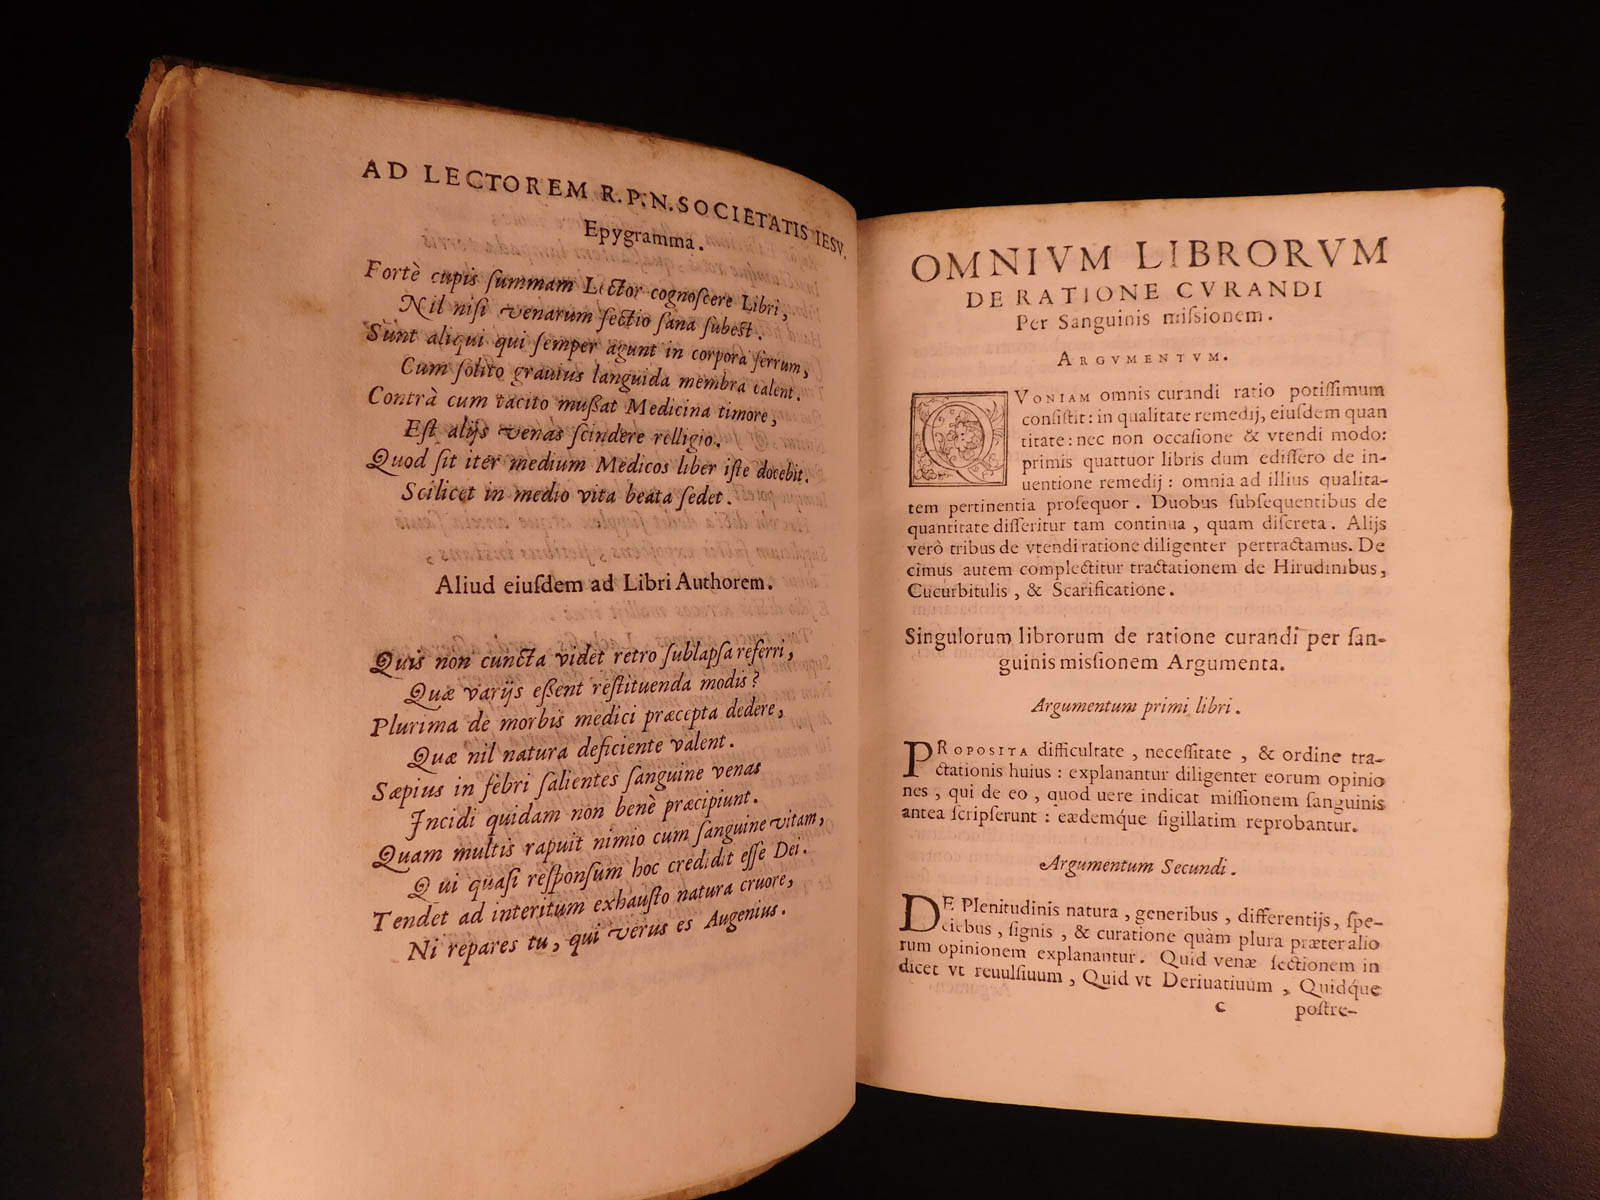 AD LECTOREM R.P.N. SOCIETATIS IESV.
Epygramma.
Fortè cupis ſummam Lector cognoſcere Libri,
Nil niſi venarum ſectio ſana ſubest.
Sunt aliqui qui ſemper agunt in corpora ferrum,
Cum ſolito grauius languida membra calent.
Contrà cum tacito mußat Medicina timore,
Est alijs venas ſcindere relligio.
Quod ſit iter medium Medicos liber iſte docebit.
Scilicet in medio vita beata ſedet.
Aliud eiuſdem ad Libri Authorem.
Quis non cuncta videt retro ſublapſa referri,
Quæ varijs eßent reſtituenda modis?
Plurima de morbis medici præcepta dedere,
Quæ nil natura deficiente valent.
Sæpius in febri ſalientes ſanguine venas
Incidi quidam non benè præcipiunt.
Quam multis rapuit nimio cum ſanguine vitam,
Qui quaſi reſponſum hoc credidit eſſe Dei.
Tendet ad interitum exhauſto natura cruore,
Ni repares tu, qui verus es Augenius.
OMNIVM LIBRORVM
DE RATIONE CVRANDI
Per Sanguinis miſsionem.
ARGVMENTVM.
QVONIAM omnis curandi ratio potiſſimum
conſiſtit: in qualitate remedij, eiuſdem quan
titate: nec non occaſione & vtendi modo:
primis quattuor libris dum ediſſero de in-
uentione remedij: omnia ad illius qualita-
tem pertinentia proſequor. Duobus ſubſequentibus de
quantitate diſſeritur tam continua, quam diſcreta. Alijs
verò tribus de vtendi ratione diligenter pertractamus. De
cimus autem complectitur tractationem de Hirudinibus,
Cucurbitulis, & Scarificatione.
Singulorum librorum de ratione curandi per ſan-
guinis miſsionem Argumenta.
Argumentum primi libri.
PROPOSITA difficultate, neceſſitate, & ordine tra-
ctationis huius: explanantur diligenter eorum opinio
nes, qui de eo, quod uere indicat miſſionem ſanguinis
antea ſcripſerunt: eædemq́ue ſigillatim reprobantur.
Argumentum Secundi.
DE Plenitudinis natura, generibus, differentijs, ſpe-
ciebus, ſignis, & curatione quàm plura præter alio
rum opinionem explanantur. Quid venæ ſectionem in
dicet vt reuulſiuum, Quid vt Deriuatiuum, Quidq́ue
c postre-